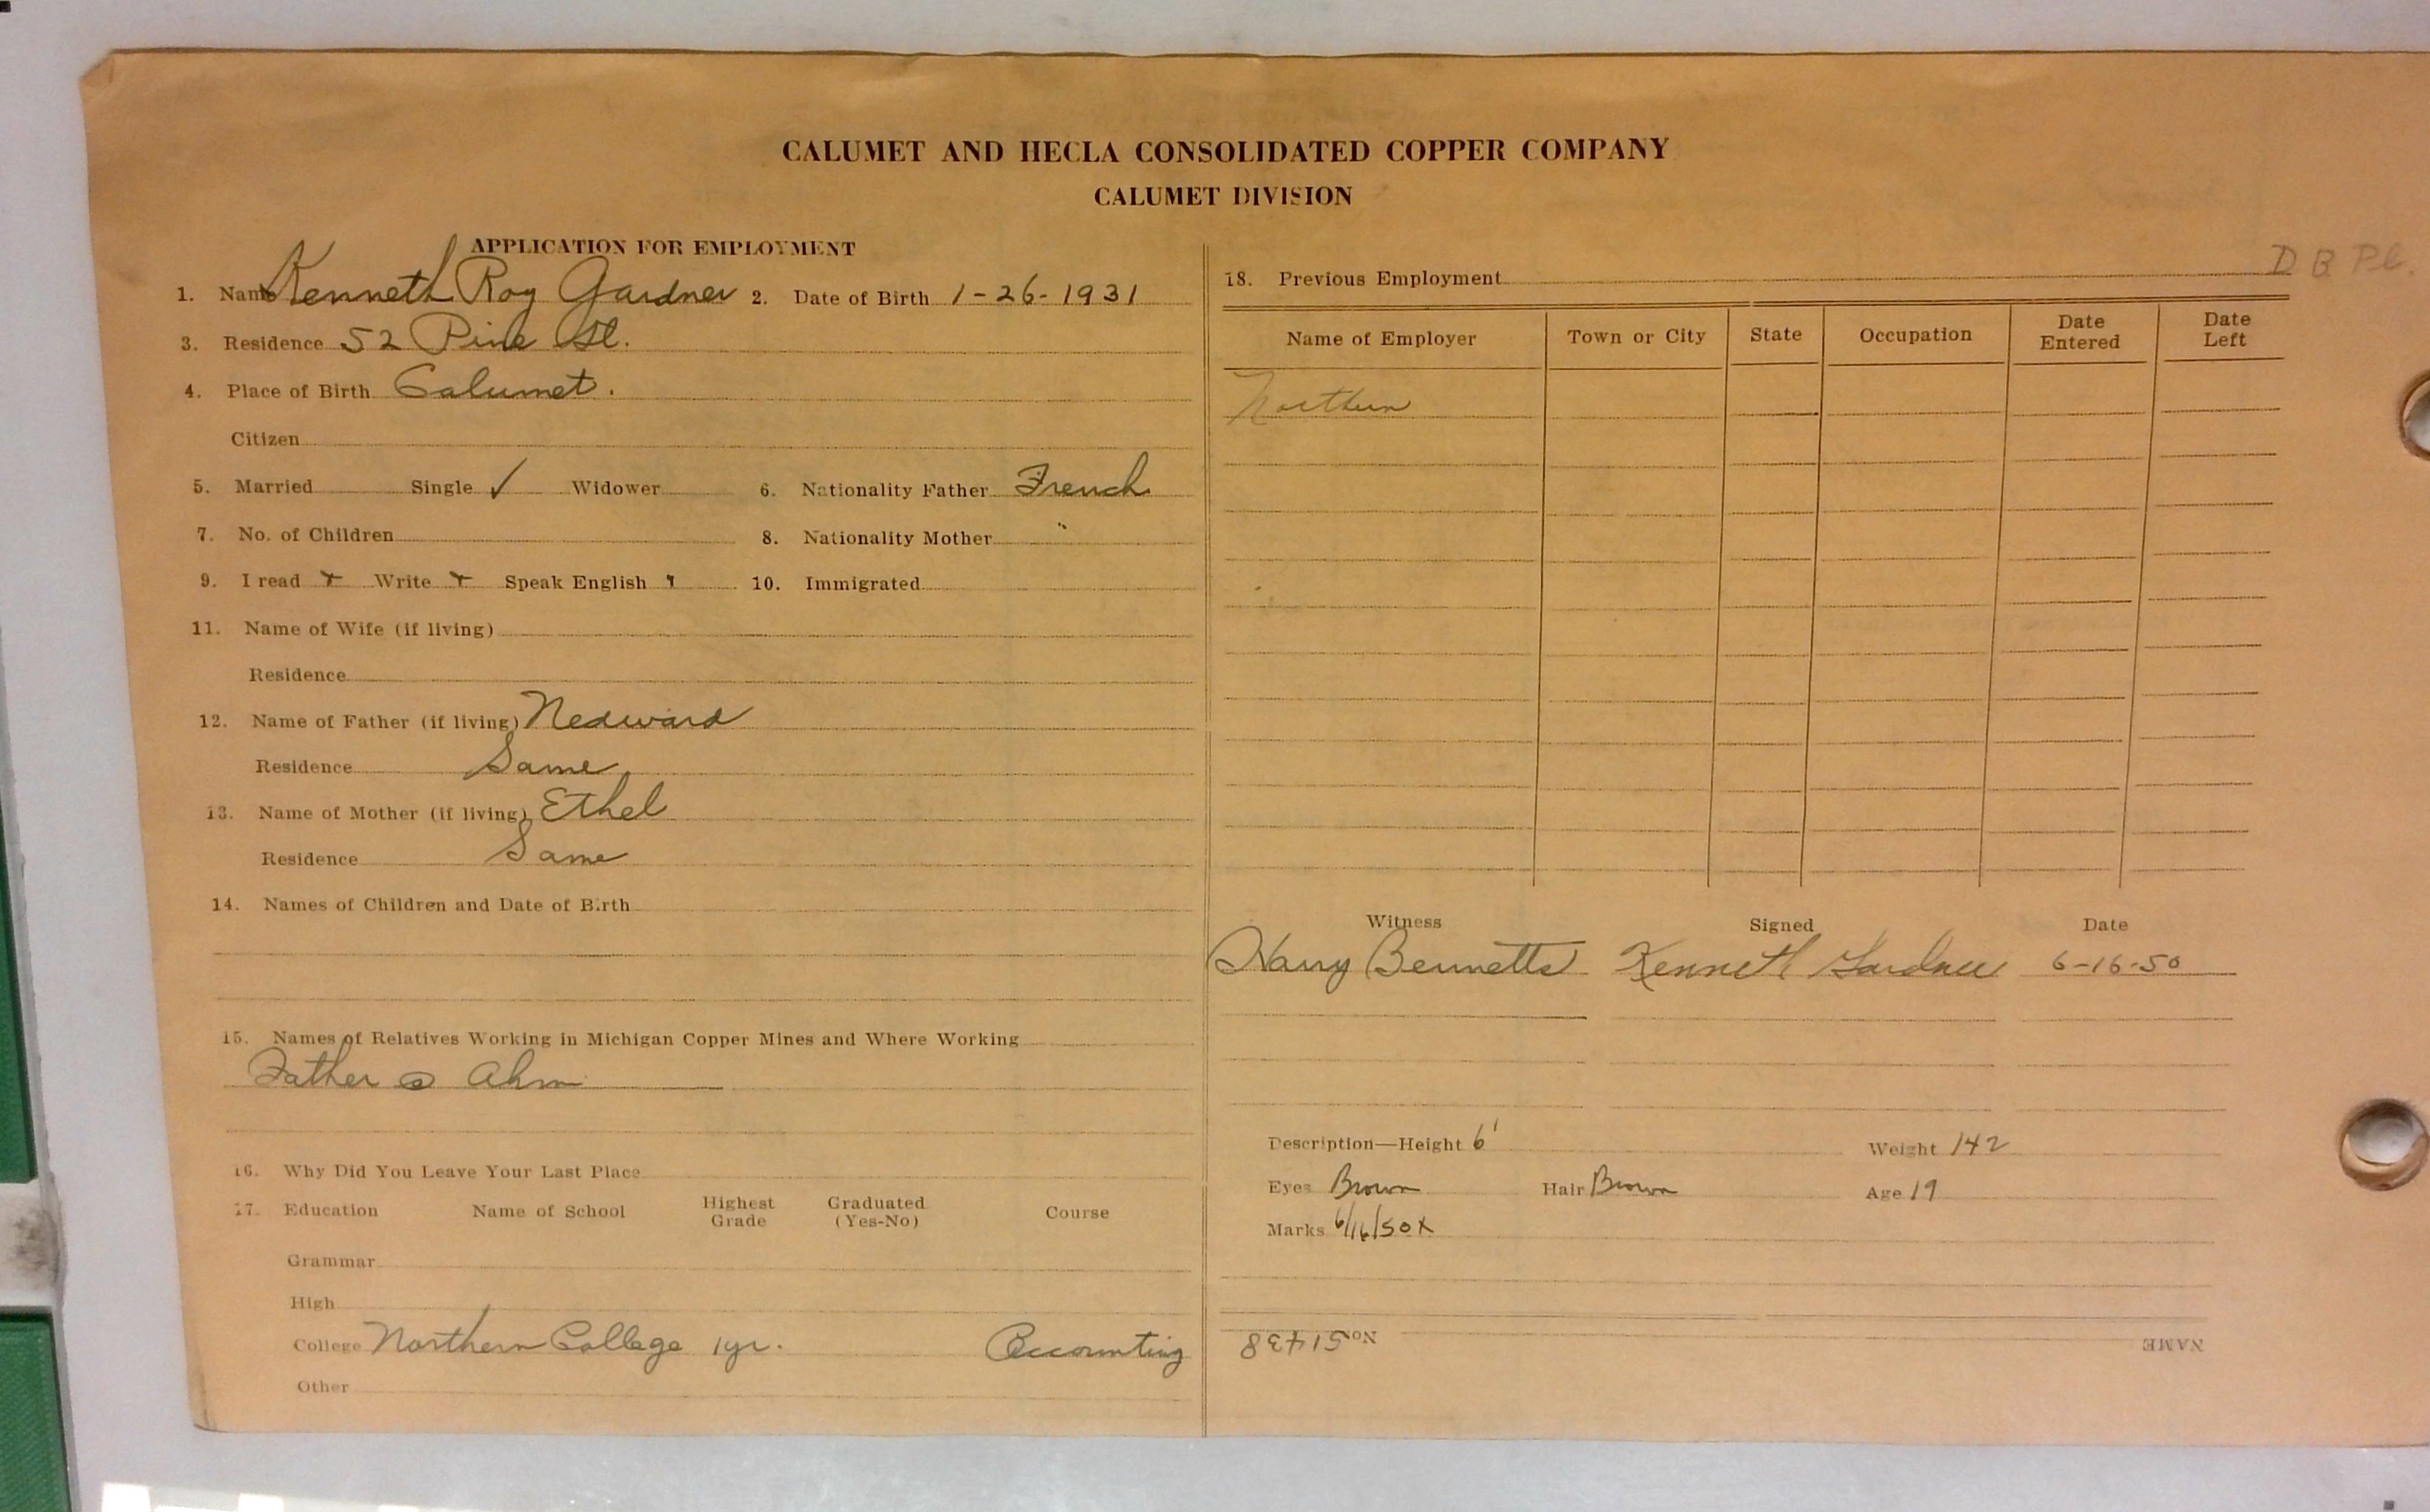 CALUMET AND HECLA CONSOLIDATED COPPER COMPANY
CALUMET DIVISION
APPLICATION FOR EMPLOYMENT
1. Name Kenneth Roy Gardner 2. Date of Birth 1-26-1931
3. Residence 52 Pine St.
4. Place of Birth Calumet.
Citizen
5. Married Single ✓ Widower 6. Nationality Father French
7. No. of Children 8. Nationality Mother "
9. I read x Write x Speak English " 10. Immigrated
11. Name of Wife (if living)
Residence
12. Name of Father (if living) Nedward
Residence Same
13. Name of Mother (if living) Ethel
Residence Same
14. Names of Children and Date of Birth
15. Names of Relatives Working in Michigan Copper Mines and Where Working
Father @ Ahm
16. Why Did You Leave Your Last Place
17. Education Name of School Highest Grade Graduated (Yes-No) Course
Grammar
High
College Northern College 1yr. Accounting
Other
D B Pl.
18. Previous Employment
Name of Employer Town or City State Occupation Date Entered Date Left
Northern
Witness Signed Date
Harry Bennetts Kenneth Gardner 6-16-50
Description—Height 6' Weight 142
Eyes Brown Hair Brown Age 19
Marks 6/16/50 X
No 51438 NAME